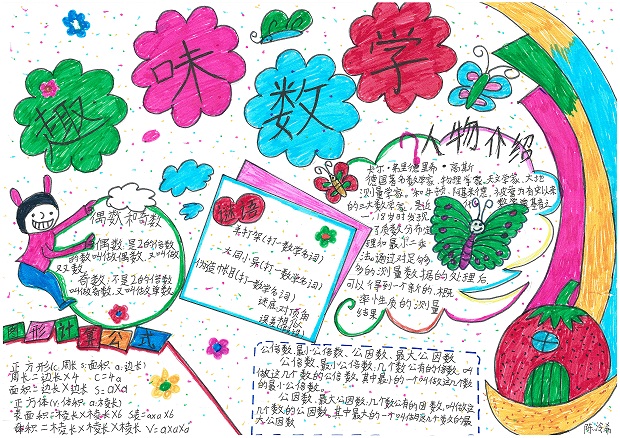 趣味数学
人物介绍
卡尔·弗里德里希·高斯
德国著名数学家、物理学家、天文学家、大地
测量学家。和牛顿、阿基米德,被誉为有史以来
的三大数学家。是近代数学奠基之一
18岁时发现
了质数分布定
理和最小二乘
法。通过对足够
多的测量数据的处理后
可以得到一个新的、概
率性质的测量
结果。
偶数和奇数
偶数:是2的倍数
的数叫做偶数,又叫做
双数。
奇数:不是2的倍数
叫做奇数,又叫做单数。
谜语
羊打架(打一数学名词)
大同小异(打一数学名词)
伪造帐目(打一数学名词)
谜底:对顶角
近似值
图形计算公式
正方形(C:周长 S:面积 a:边长)
周长=边长×4 C=4a
面积=边长×边长 S=a×a
正方体(V:体积 a:棱长)
表面积=棱长×棱长×6 S表=a×a×6
体积=棱长×棱长×棱长 V=a×a×a
公倍数、最小公倍数、公因数、最大公因数
公倍数、最小公倍数:几个数公有的倍数,叫
做这几个数的公倍数,其中最小的一个叫做这几个数
的最小公倍数。
公因数、最大公因数:几个数公有的因数,叫做这
几个数的公因数,其中最大的一个叫做这几个数的最
大公因数
陈